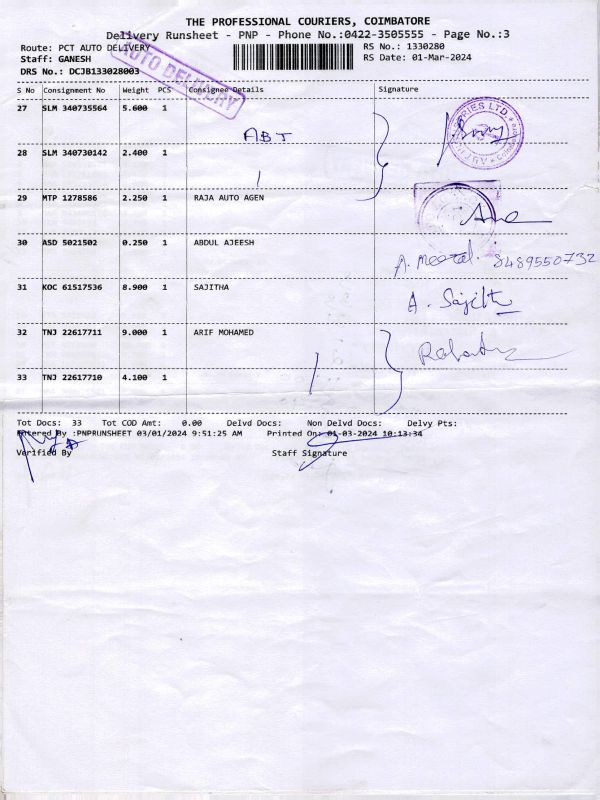 THE PROFESSIONAL COURIERS, COIMBATORE
Delivery Runsheet - PNP - Phone No.:0422-3505555 - Page No.:3
Route: PCT AUTO DELIVERY
RS No.: 1330280
Staff: GANESH
RS Date: 01-Mar-2024
DRS No.: DCJB133028003
AUTO DELIVERY
S No Consignment No Weight PCS Consignee Details Signature
27 SLM 340735564 5.600 1
ABT
28 SLM 340730142 2.400 1
29 MTP 1278586 2.250 1 RAJA AUTO AGEN
30 ASD 5021502 0.250 1 ABDUL AJEESH
8489550732
31 KOC 61517536 8.900 1 SAJITHA
A. Sajith
32 TNJ 22617711 9.000 1 ARIF MOHAMED
33 TNJ 22617710 4.100 1
Tot Docs: 33 Tot COD Amt: 0.00 Delvd Docs: Non Delvd Docs: Delvy Pts:
Entered By :PNPRUNSHEET 03/01/2024 9:51:25 AM Printed On: 01-03-2024 10:13:34
Verified By Staff Signature